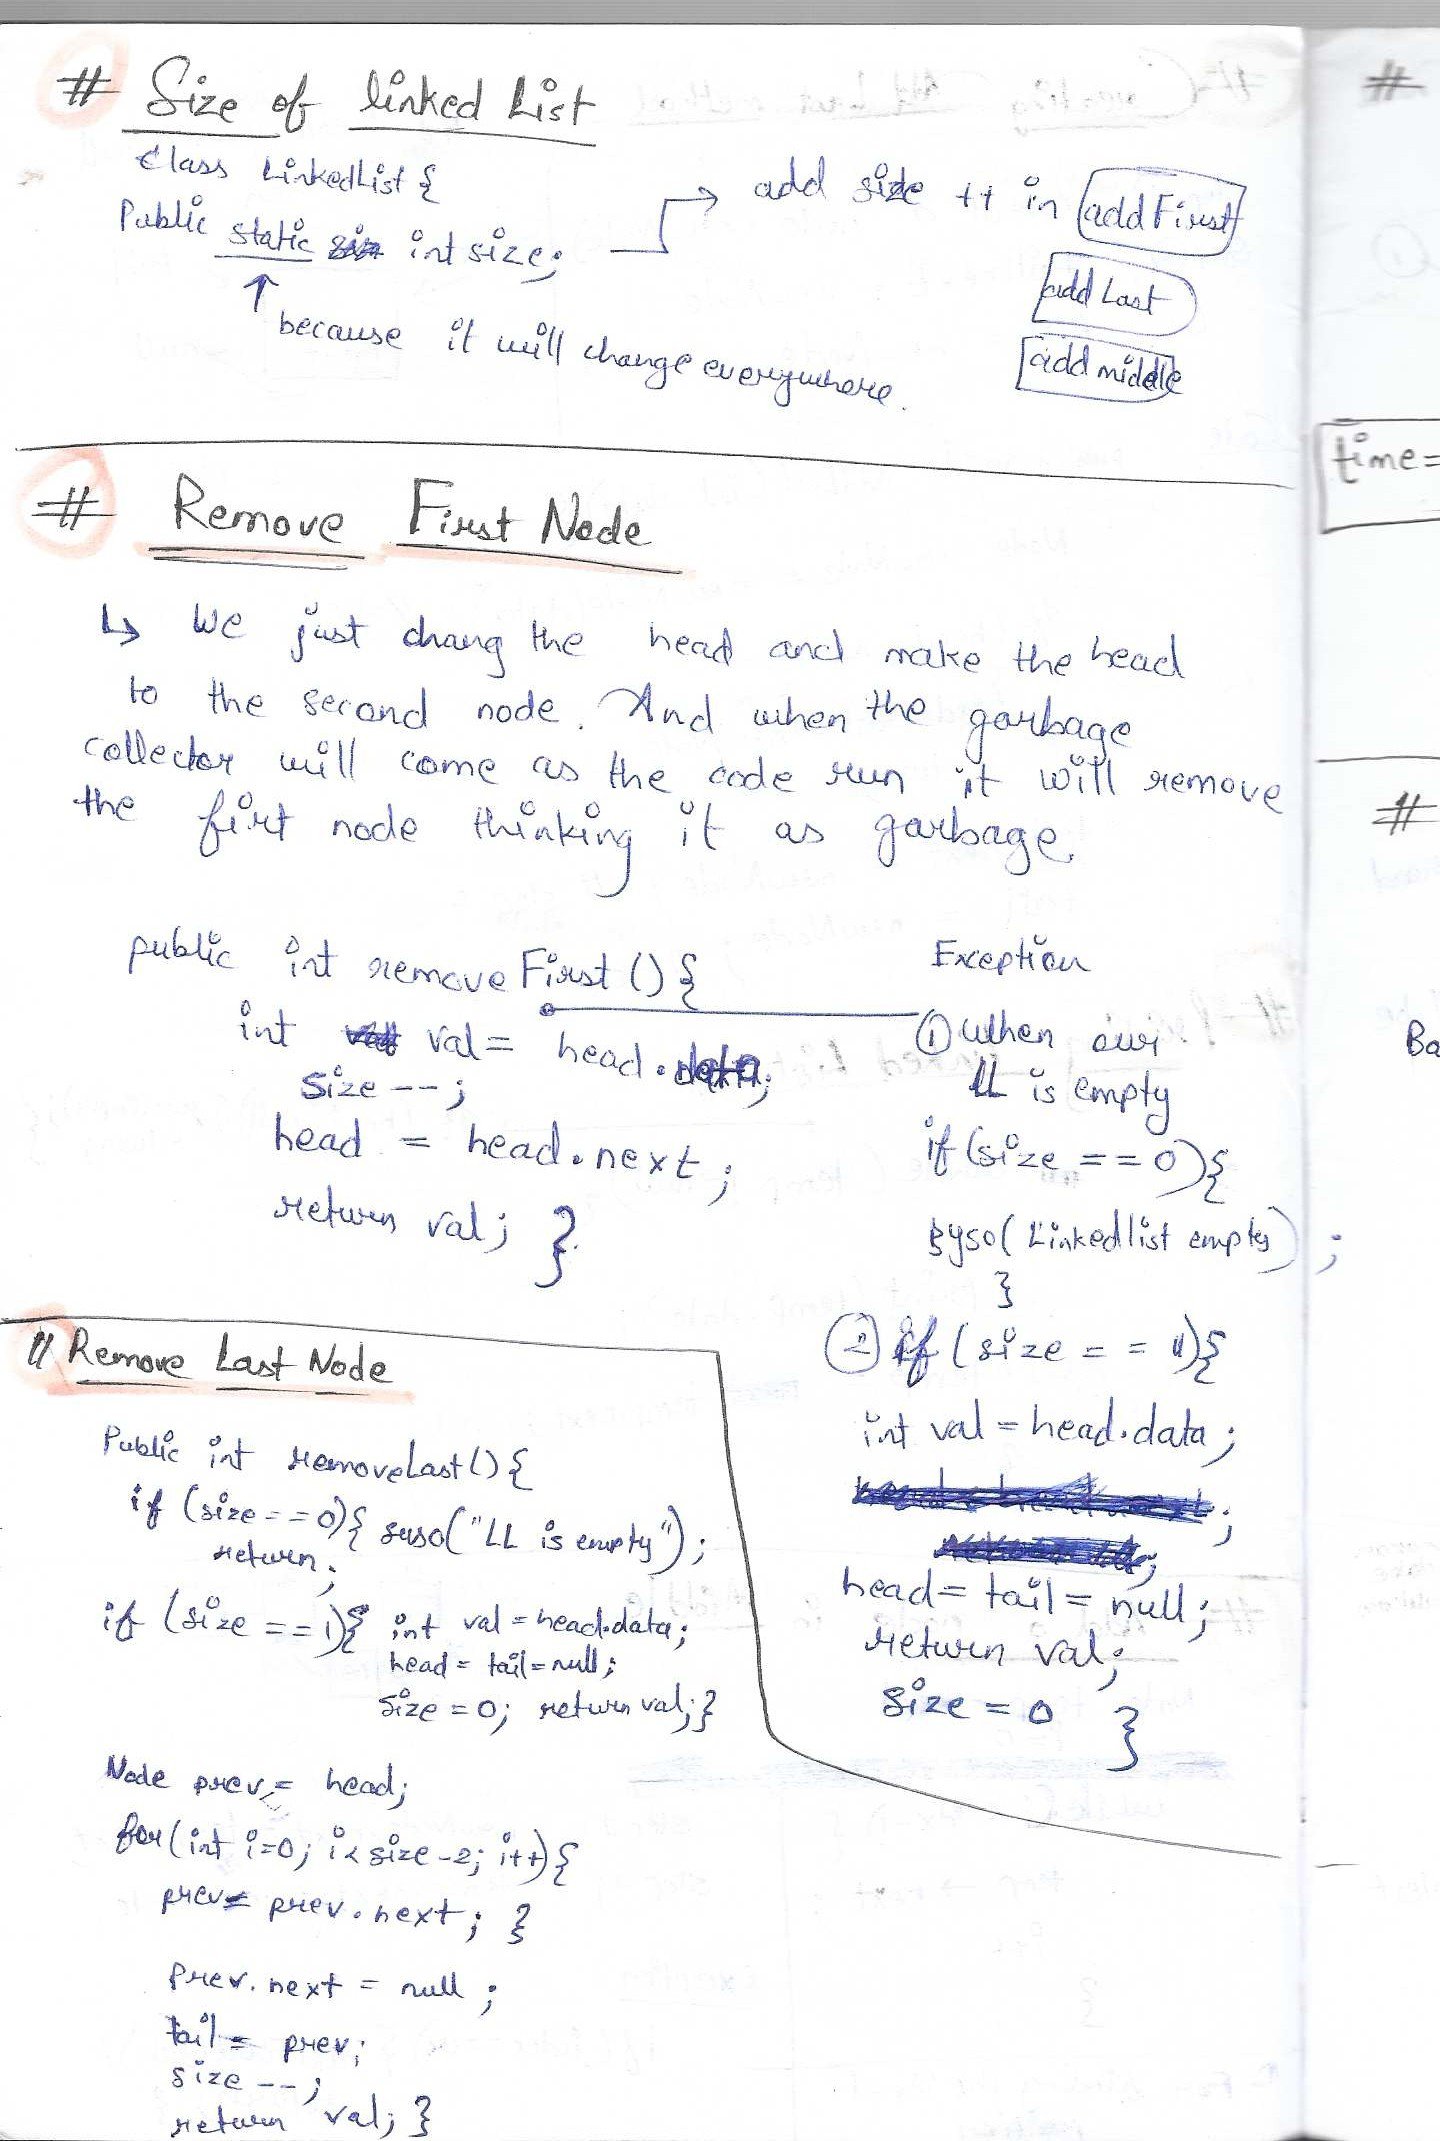 # Size of linked List
Class LinkedList {
Public static int size;
because it will change everywhere.
add size ++ in addFirst
add Last
add middle
# Remove First Node
↳ We just chang the head and make the head
to the second node. And when the garbage
collector will come as the code run it will remove
the firt node thinking it as garbage.
public int removeFirst () {
int val = head.data;
size --;
head = head.next;
return val; }
Exception
① When our
LL is empty
if (size == 0) {
syso( Linkedlist empty) ;
}
② if (size == 1) {
int val = head.data;
head = tail = null;
return val;
size = 0 }
# Remove Last Node
Public int removeLast() {
if (size == 0) { syso("LL is empty");
return;
if (size == 1) { int val = head.data;
head = tail = null;
size = 0; return val; }
Node prev = head;
for (int i=0; i< size -2; i++) {
prev = prev.next; }
Prev.next = null ;
tail = prev;
size --;
return val; }
#
time=
#
Ba